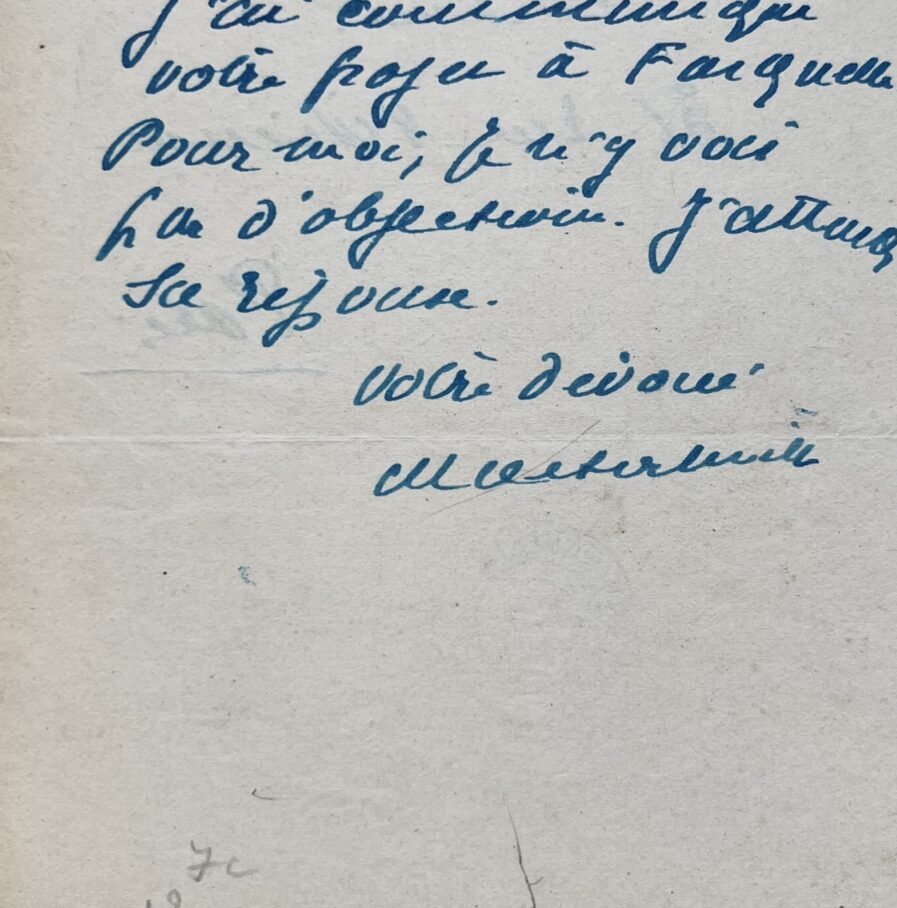 J'ai communiqué
votre projet à Fasquelle
Pour moi, je n'y vois
pas d'objection. J'attends
sa réponse.
Votre dévoué
Maeterlinck
7c